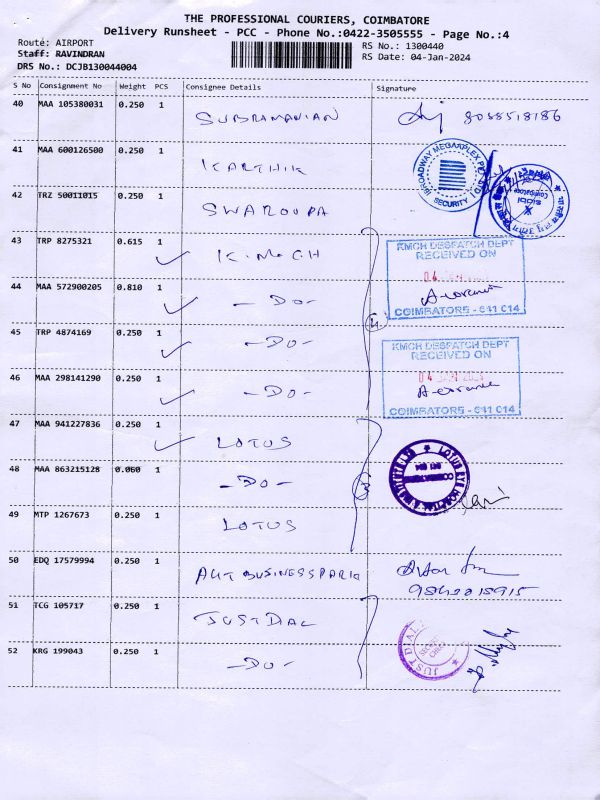 THE PROFESSIONAL COURIERS, COIMBATORE
Delivery Runsheet - PCC - Phone No.:0422-3505555 - Page No.:4
Route: AIRPORT
RS No.: 1300440
Staff: RAVINDRAN
RS Date: 04-Jan-2024
DRS No.: DCJB130044004
S No Consignment No Weight PCS Consignee Details Signature
40 MAA 105380031 0.250 1 SUBRAMANIAN 8088518186
41 MAA 600126500 0.250 1 KARTHIK
BROADWAY MEGAAPLEX PVT
SECURITY
42 TRZ 50011015 0.250 1 SWAROUPA
Coimbatore
43 TRP 8275321 0.615 1 K.M.C.H
KMCH DESPATCH DEPT
RECEIVED ON
44 MAA 572900205 0.810 1 -DO-
COIMBATORE - 641 014
45 TRP 4874169 0.250 1 -DO-
KMCH DESPATCH DEPT
RECEIVED ON
46 MAA 298141290 0.250 1 -DO-
04 JAN
COIMBATORE - 641 014
47 MAA 941227836 0.250 1 LOTUS
LOTUS EYE HOSPITAL
48 MAA 863215128 0.060 1 -DO-
49 MTP 1267673 0.250 1 LOTUS
50 EDQ 17579994 0.250 1 AKT BUSINESSPARK
9842018915
51 TCG 105717 0.250 1 JUSTDIAL
JUST DIAL
52 KRG 199043 0.250 1 -DO-